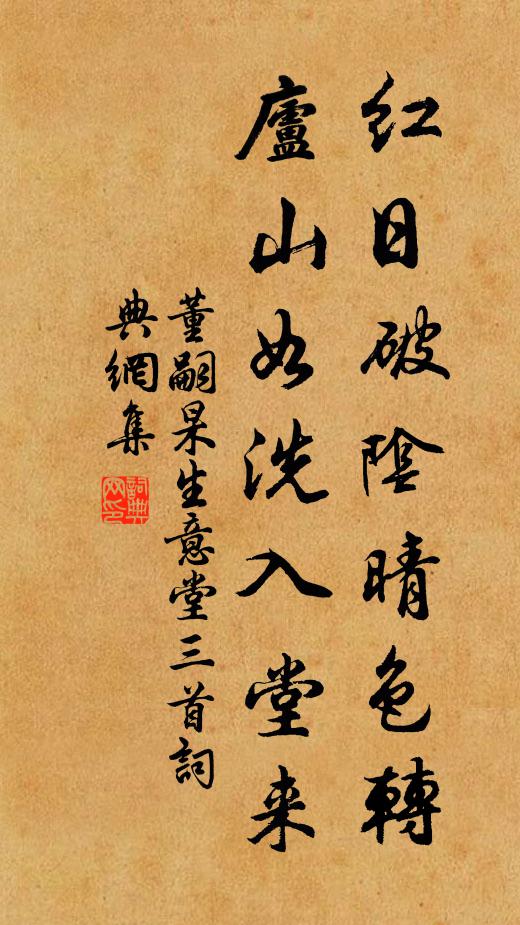 红日破陰晴色轉
廬山如洗入堂来
董嗣杲生意堂三首詞
典網集
詞典
网印